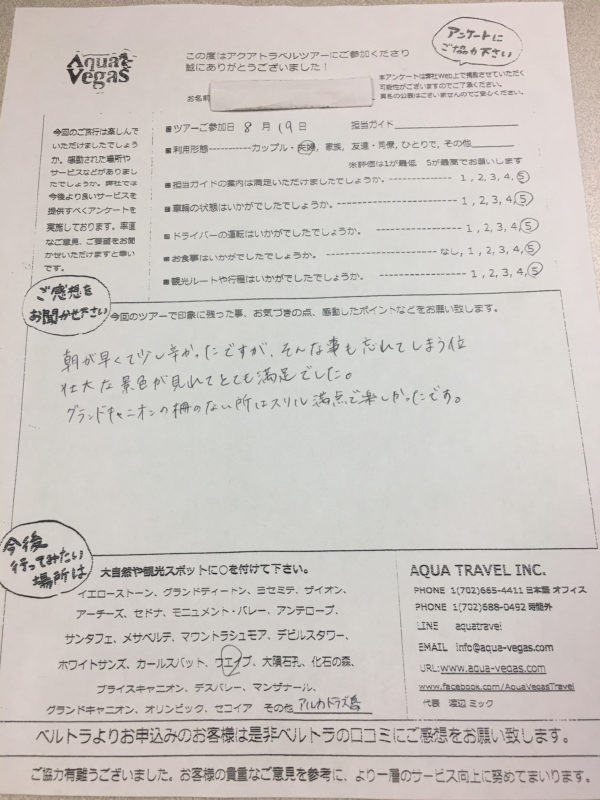 Aqua
Vegas
この度はアクアトラベルツアーにご参加くださり
誠にありがとうございました！
アンケートに
ご協力下さい
本アンケートは弊社Web上で掲載させていただく
可能性がございますのでご了承ください。
実名の公表はございませんのでご安心ください。
お名前
今回のご旅行は楽しんで
いただけましたでしょう
か。感動された場所や
サービスなどがありまし
たでしょうか。弊社では
今後より良いサービスを
提供すべくアンケートを
実施しております。率直
なご意見、ご要望をお聞
かせいただけますと幸い
です。
■ツアーご参加日 8 月 19 日 担当ガイド
■利用形態-----------カップル・夫婦, 家族, 友達・同僚, ひとりで, その他
※評価は1が最低 5が最高でお願いします
■担当ガイドの案内は満足いただけましたでしょうか。 ---------------- 1, 2, 3, 4, 5
■車輌の状態はいかがでしたでしょうか。 ---------------- 1, 2, 3, 4, 5
■ドライバーの運転はいかがでしたでしょうか。 ---------------- 1, 2, 3, 4, 5
■お食事はいかがでしたでしょうか。 ---------------- なし, 1, 2, 3, 4, 5
■観光ルートや行程はいかがでしたでしょうか。 ---------------- 1, 2, 3, 4, 5
ご感想を
お聞かせ下さい
今回のツアーで印象に残った事、お気づきの点、感動したポイントなどをお願い致します。
朝が早くて少し辛かったですが、そんな事も忘れてしまう位
壮大な景色が見れてとても満足でした。
グランドキャニオンの柵のない所はスリル満点で楽しかったです。
今後
行ってみたい
場所は
大自然や観光スポットに○を付けて下さい。
イエローストーン、グランドティートン、ヨセミテ、ザイオン、
アーチーズ、セドナ、モニュメント・バレー、アンテロープ、
サンタフェ、メサベルテ、マウントラシュモア、デビルスタワー、
ホワイトサンズ、カールスバット、ウエイブ、大隕石孔、化石の森、
ブライスキャニオン、デスバレー、マンザナール、
グランドキャニオン、オリンピック、セコイア その他 アルカトラズ島
AQUA TRAVEL INC.
PHONE 1(702)665-4411 日本語 オフィス
PHONE 1(702)688-0492 時間外
LINE aquatravel
EMAIL info@aqua-vegas.com
URL:www.aqua-vegas.com
www.facebook.com/AquaVegasTravel
代表 渡辺 ミック
ベルトラよりお申込みのお客様は是非ベルトラの口コミにご感想をお願い致します。
ご協力有難うございました。お客様の貴重なご意見を参考に、より一層のサービス向上に努めてまいります。